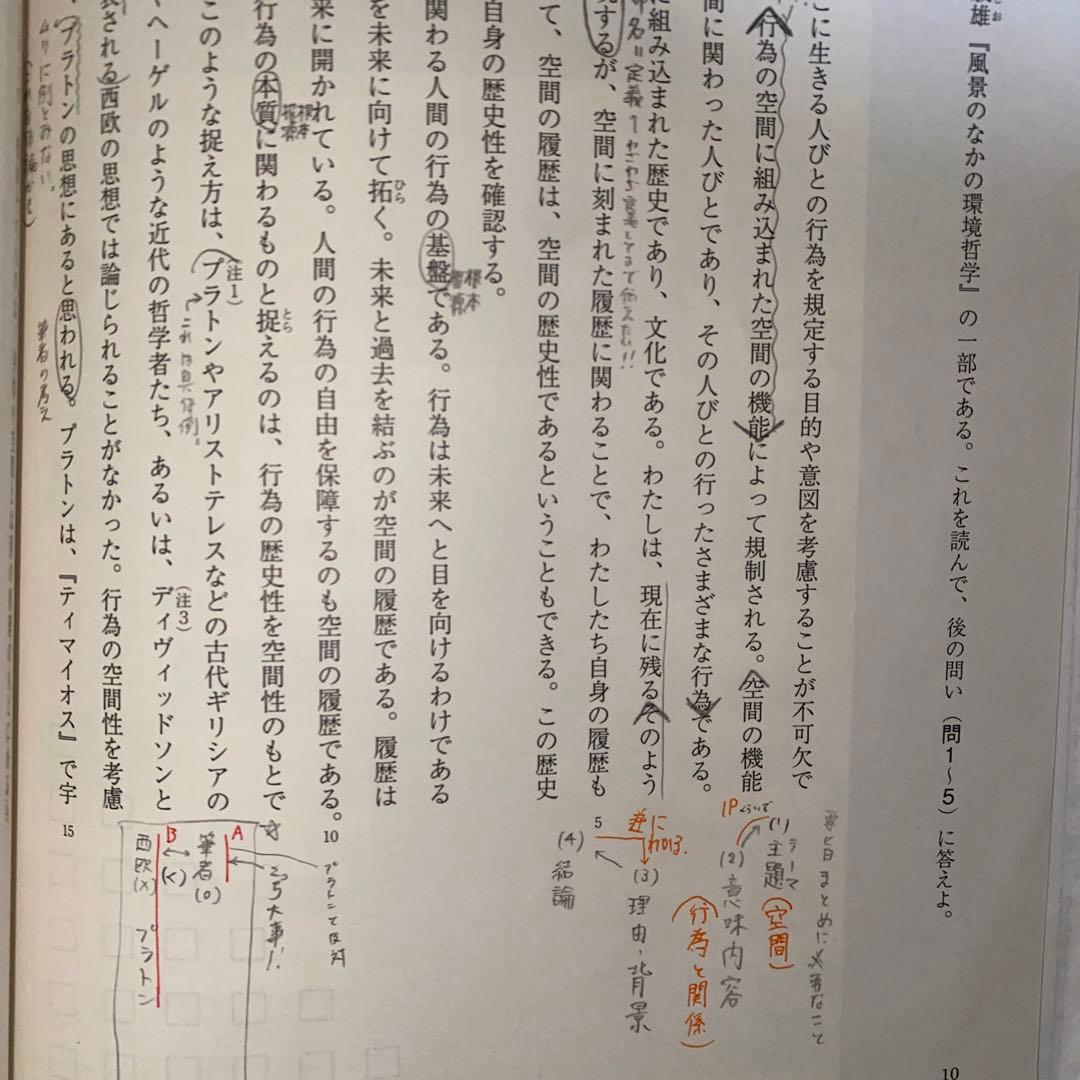 雄『風景のなかの環境哲学』の一部である。これを読んで、後の問い（問1〜5）に答えよ。
10
こに生きる人びとの行為を規定する目的や意図を考慮することが不可欠で
行為の空間に組み込まれた空間の機能によって規制される。空間の機能
間に関わった人びとであり、その人びとの行ったさまざまな行為である。
に組み込まれた歴史であり、文化である。わたしは、現在に残るそのよう
するが、空間に刻まれた履歴に関わることで、わたしたち自身の履歴も
5
て、空間の履歴は、空間の歴史性であるということもできる。この歴史
自身の歴史性を確認する。
関わる人間の行為の基盤である。行為は未来へと目を向けるわけである
を未来に向けて拓く。未来と過去を結ぶのが空間の履歴である。履歴は
ひら
来に開かれている。人間の行為の自由を保障するのも空間の履歴である。
10
行為の本質に関わるものと捉えるのは、行為の歴史性を空間性のもとで
とら
このような捉え方は、プラトンやアリストテレスなどの古代ギリシアの
（注1）
やヘーゲルのような近代の哲学者たち、あるいは、ディヴィッドソンと
（注3）
される西欧の思想では論じられることがなかった。行為の空間性を考慮
プラトンの思想にあると思われる。プラトンは、『ティマイオス』で宇
15
根本
根本
これは具体例。
筆者の考え
ムリに例とみない。
(1)主題
テーマ
(空間)
(2)意味内容
(行為と関係)
(3)理由・背景
逆に
(4)結論
プラトンて反対
こっち大事!!
A
筆者(○)
(<)
B
西欧(×) プラトン